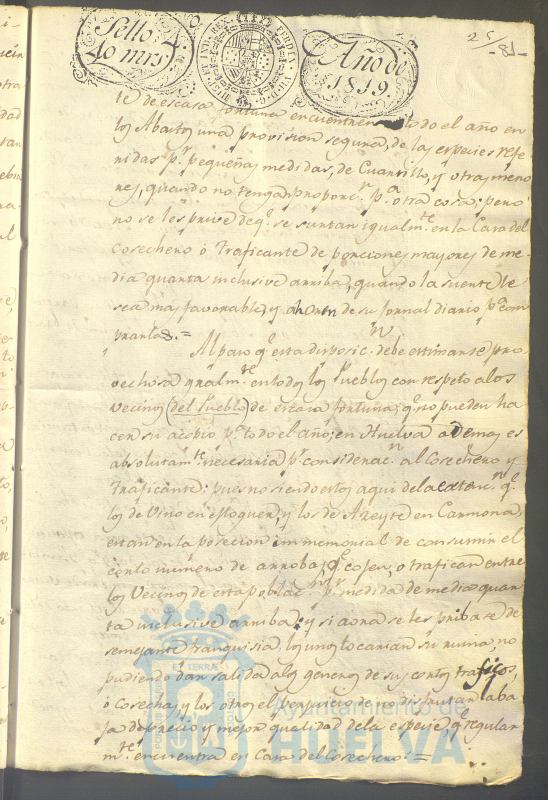 Sello 4.º
40 mrs
HISP. ET IND. REX. FERDIN. VII. D. G.
Año de
1819.
25
-81-
te de escasa fortuna encuentren todo el año en
los Abastos una provision segura, de las especies refe
ridas p.r pequeñas medidas, de Cuartillo, y otras meno
res, quando no tengan proporc.n p.a otra cosa; pero
no se les prive de q.e se surtan igualm.te en la Casa del
Cosechero ó Traficante de porciones mayores de me-
dia quarta inclusive arriba, quando la suerte le
sea mas favorable, y ahorren de su jornal diario p.a com
prarlas.=
Al paso q.e esta disposic.n debe estimarse pro
vechosa gralm.te en todos los Pueblos con respeto a los
vecinos (del Pueblo) de escasa fortuna, q.e no pueden ha
cer su acopio p.a todo el año; en Huelva ademas es
absolutam.te necesaria p.r considerac.n al Cosechero y
Traficante: pues no siendo estos aqui de la extenc.n q.e
los de Vino en Moguer, y los de Azeyte en Carmona,
estan en la posecion immemorial de consumir el
corto numero de arrobas q.e cojen, o trafican entre
los Vecinos de esta poblac.n p.r medida de media quar
ta inclusive arriba; y si aora se les pribase de
semejante franquisia, los unos tocarian su ruina, no
pudiendo dar salida a los generos de sus cortos traficos,
ó Cosechas, y los otros el perjuicio de no disfrutar la ba
ja de precio y mejor qualidad de la especie, q.e regular
m.te encuentra en Casa del Cosechero.=
Ayuntamiento de
HUELVA